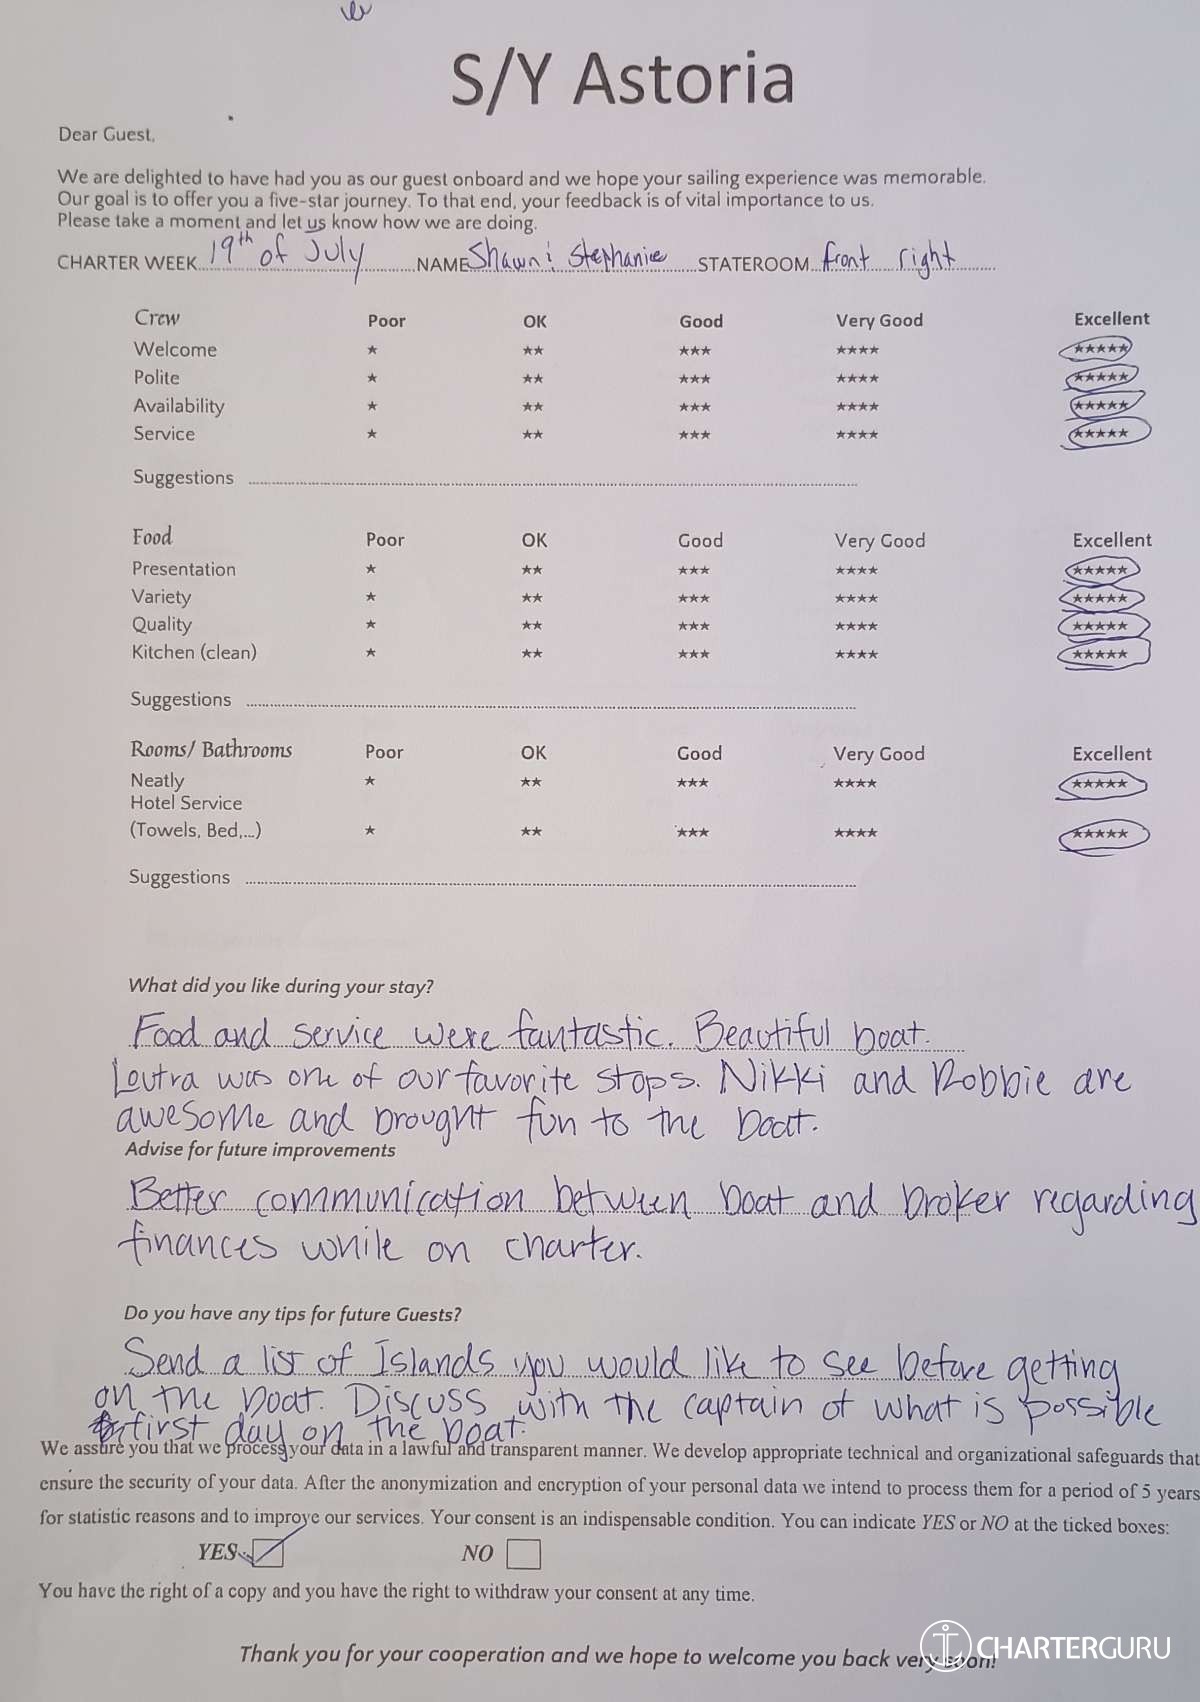 S/Y Astoria
Dear Guest,
We are delighted to have had you as our guest onboard and we hope your sailing experience was memorable.
Our goal is to offer you a five-star journey. To that end, your feedback is of vital importance to us.
Please take a moment and let us know how we are doing.
CHARTER WEEK 19th of July NAME Shawn & Stephanie STATEROOM front right
Crew Poor OK Good Very Good Excellent
Welcome ★ ★★ ★★★ ★★★★ ★★★★★
Polite ★ ★★ ★★★ ★★★★ ★★★★★
Availability ★ ★★ ★★★ ★★★★ ★★★★★
Service ★ ★★ ★★★ ★★★★ ★★★★★
Suggestions
Food Poor OK Good Very Good Excellent
Presentation ★ ★★ ★★★ ★★★★ ★★★★★
Variety ★ ★★ ★★★ ★★★★ ★★★★★
Quality ★ ★★ ★★★ ★★★★ ★★★★★
Kitchen (clean) ★ ★★ ★★★ ★★★★ ★★★★★
Suggestions
Rooms/ Bathrooms Poor OK Good Very Good Excellent
Neatly ★ ★★ ★★★ ★★★★ ★★★★★
Hotel Service
(Towels, Bed,...) ★ ★★ ★★★ ★★★★ ★★★★★
Suggestions
What did you like during your stay?
Food and service were fantastic. Beautiful boat.
Loutra was one of our favorite stops. Nikki and Robbie are
awesome and brought fun to the boat.
Advise for future improvements
Better communication between boat and broker regarding
finances while on charter.
Do you have any tips for future Guests?
Send a list of Islands you would like to see before getting
on the boat. Discuss with the captain of what is possible
first day on the boat.
We assure you that we process your data in a lawful and transparent manner. We develop appropriate technical and organizational safeguards that
ensure the security of your data. After the anonymization and encryption of your personal data we intend to process them for a period of 5 years
for statistic reasons and to improve our services. Your consent is an indispensable condition. You can indicate YES or NO at the ticked boxes:
YES NO
You have the right of a copy and you have the right to withdraw your consent at any time.
Thank you for your cooperation and we hope to welcome you back very soon!
CHARTERGURU